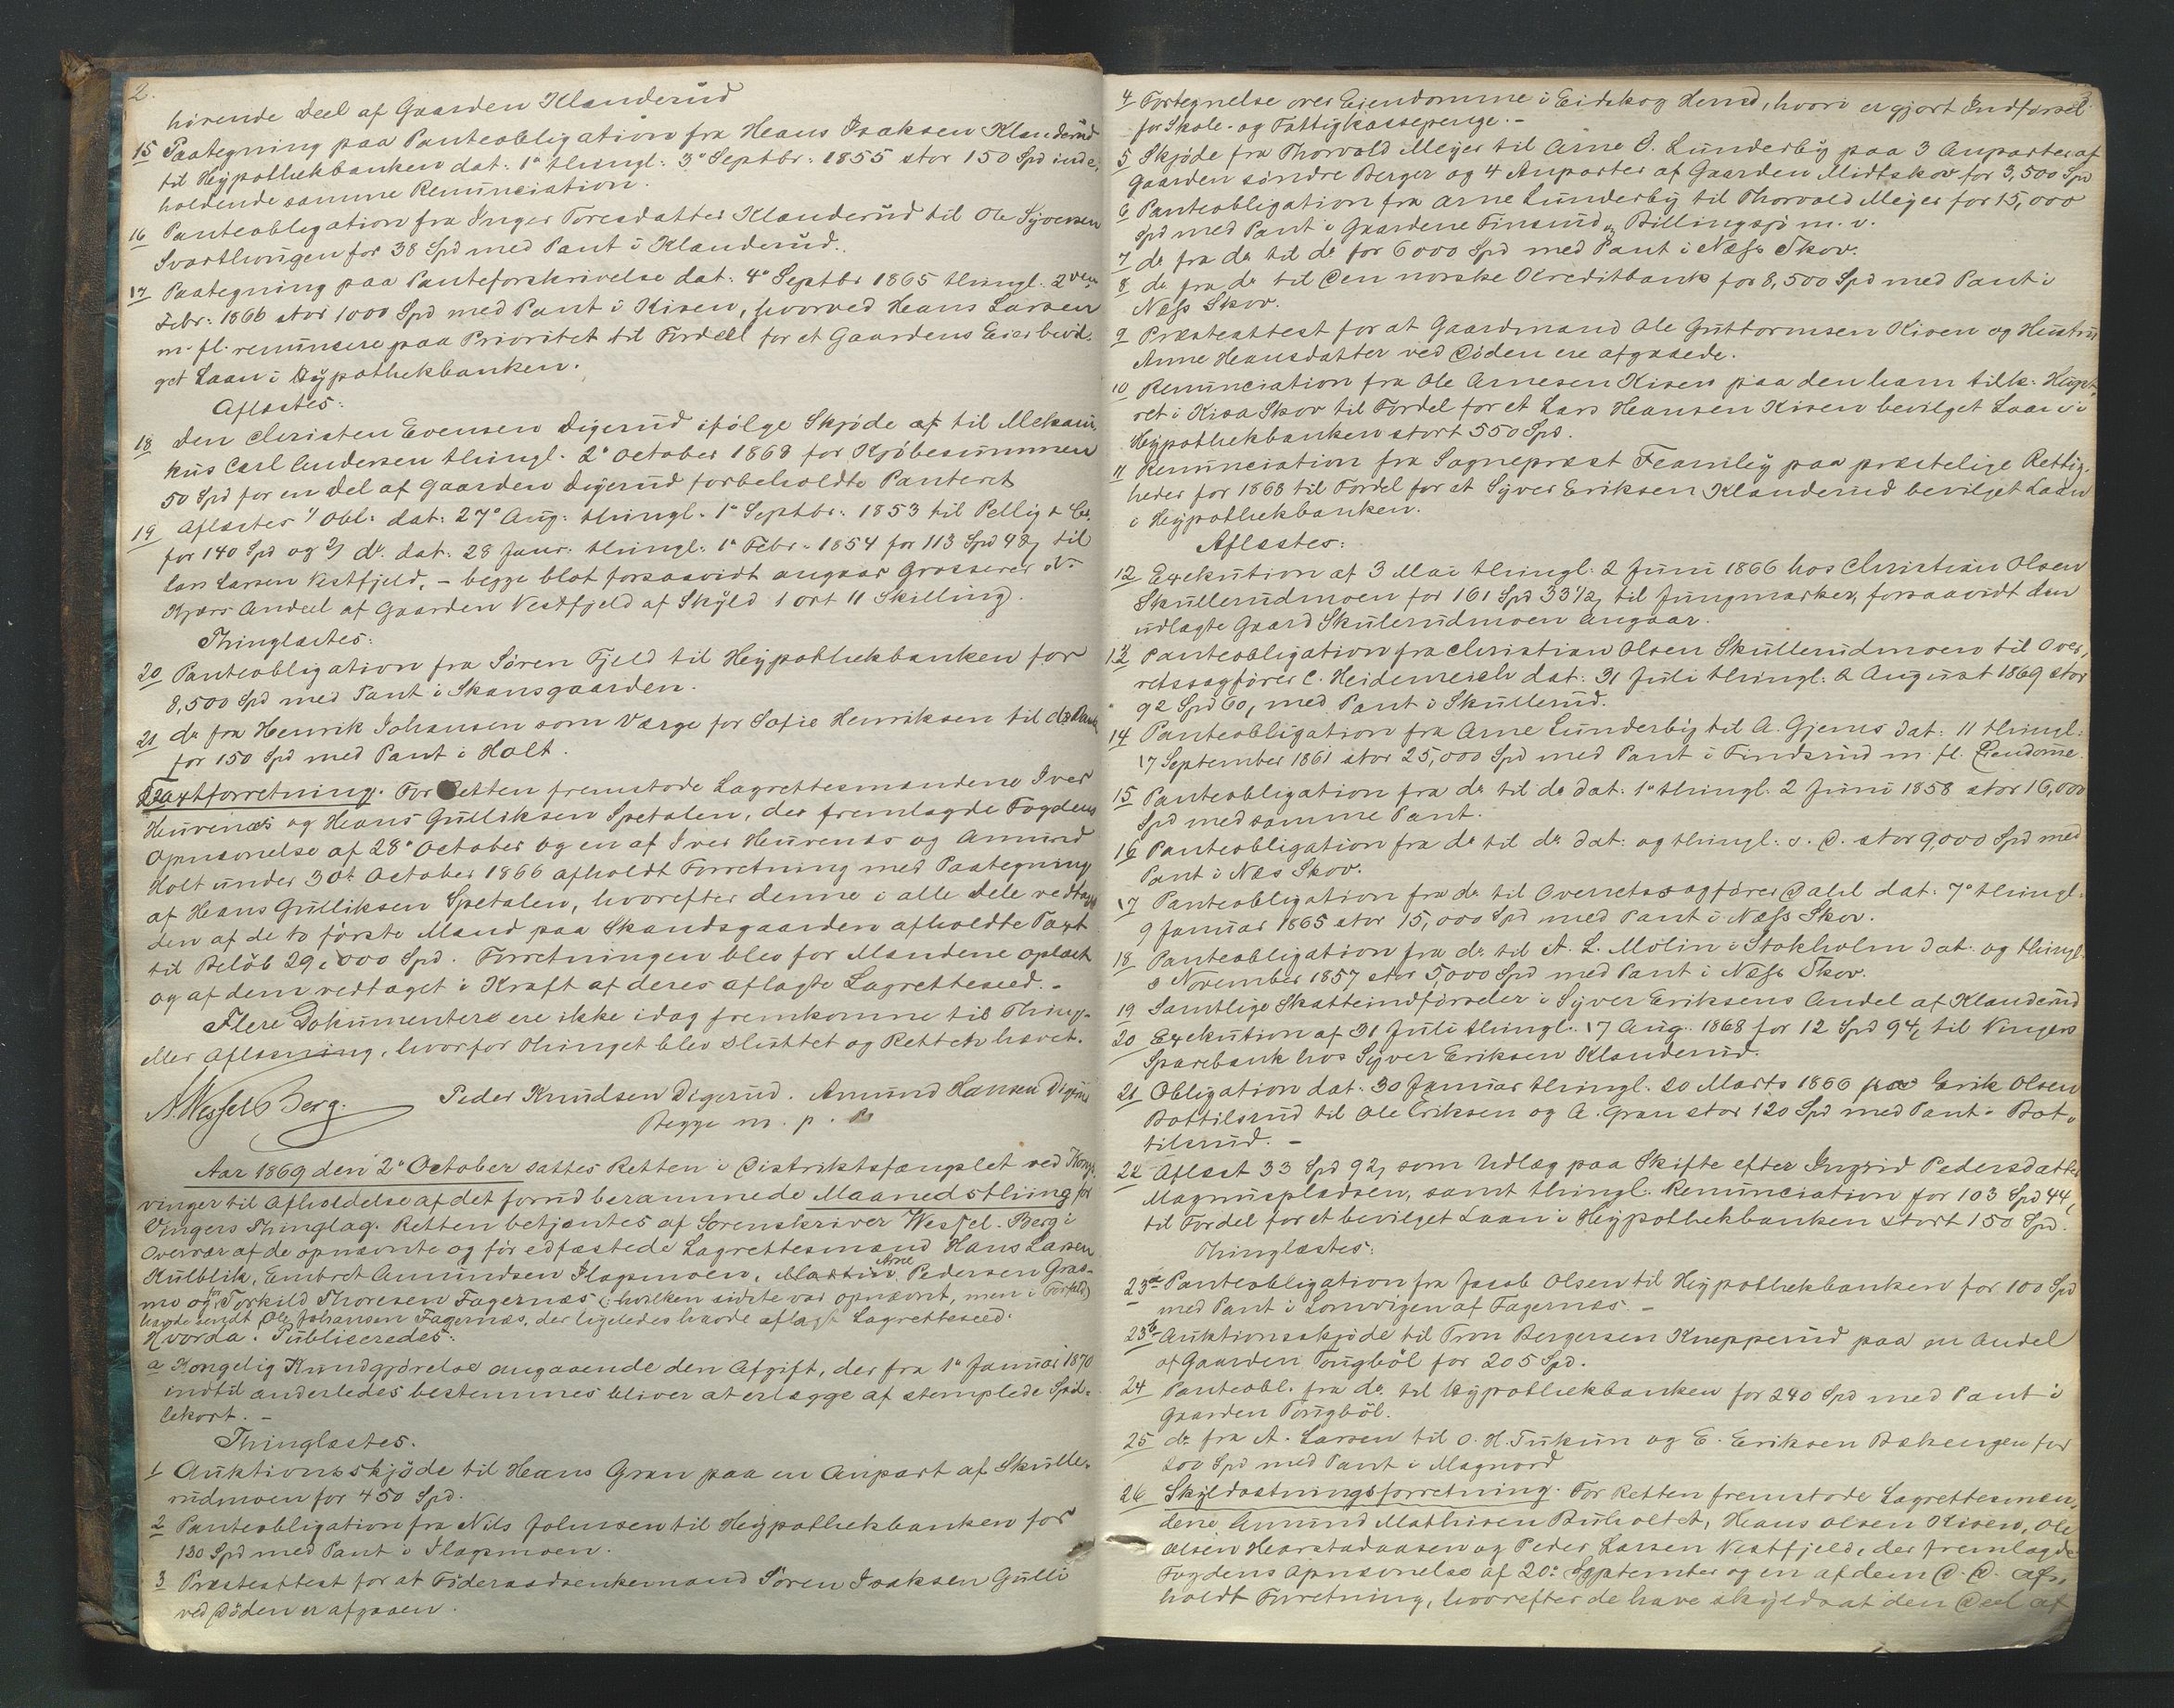 2.
hörende Deel af Gaarden Klanderud
15 Paategning paa Panteobligation fra Hans Isaksen Klanderud
til Hypothekbanken dat: 1' thingl: 3' Septbr: 1855 stor 150 Spd inde-
holdende samme Renunciation.
16 Panteobligation fra Inger Toresdatter Klanderud til Ole Syversen
Svarthungen for 38 Spd med Pant i Klanderud.
17 Paategning paa Panteforskrivelse dat: 4' Septbr 1865 thingl. 2den
Febr: 1866 stor 1000 Spd med Pant i Kisen, hvorved Hans Larsen
m. fl. renuncere paa Prioritet til Fordeel for et Gaardens Eier bevil-
get Laan i Hypothekbanken.
Aflæstes:
18 Den Christen Evensen Digerud ifölge Skjöde af til Mekani-
kus Carl Andersen thingl. 2' October 1868 for Kjöbesummen
50 Spd for en Del af Gaarden Digerud forbeholdte Panteret
19 Aflæstes 1/ Obl: dat: 27' Aug: thingl. 1' Septbr: 1853 til Pellig & Co.
for 140 Spd og 2/ do. dat: 28 Janr: thingl: 1' Febr: 1854 for 113 Spd 48, til
Lars Larsen Vestfjeld, - begge blot forsaavidt angaar Grosserer N.
Kjærs Andeel af Gaarden Vestfjeld af Skyld 1 ort 11 Skilling.
Thinglæstes:
20 Panteobligation fra Sören Fjeld til Hypothekbanken for
8,500 Spd med Pant i Skansgaarden.
21 do fra Henrik Johansen som Værge for Sofie Henriksen til ds Bank
for 150 Spd med Pant i Holt.
22 Taxtforretning. For Retten fremstode Lagrettesmændene Iver
Heurenæs og Hans Gulliksen Spetalen, der fremlagde Fogdens
Opnævnelse af 28' October og en af Iver Heurenæs og Amund
Holt under 30t October 1866 afholdt Forretning med Paategning
af Hans Gulliksen Spetalen, hvorefter denne i alle Dele vedtager
den af de to förste Mænd paa Skandsgaarden afholdte Taxt
til Belöb 29,000 Spd. Forretningen blev for Mændene oplæst
og af dem vedtaget i Kraft af deres aflagte Lagretteseed.-
Flere Dokumenter ere ikke idag fremkomne til Thing-
eller Aflæsning, hvorfor Thinget blev sluttet og Retten hævet.
N. Wessel Berg. Peder Knudsen Digerud. Amund Hansen Digerud
Begge m. p. P.
Aar 1869 den 2' October sattes Retten i Distriktsfængslet ved Kongs-
vinger til Afholdelse af det forud berammede Maanedsthing for
Vingers Thinglag. Retten betjentes af Sorenskriver Wessel-Berg i
Overvær af de opnævnte og för edfæstede Lagrettesmænd Hans Larsen
Kulblik, Embret Amundsen Slagsmoen, Martin Arne Pedersen Gras-
mo og for Torkild Thoresen Fagernæs (: hvilken sidste var opnævnt, men i Forfald)
havde sendt Ole Johansen Fagernæs, der ligeledes havde aflagt Lagretteseed.
Hvorda: Publiceredes:
a Kongelig Kundgjörelse angaaende den Afgift, der fra 1' Januar 1870
indtil anderledes bestemmes bliver at erlægge af stemplede Spil-
lekort. -
Thinglæstes.
1 Auktionsskjöde til Hans Gran paa en Anpart af Skulle-
rudmoen for 450 Spd.
2 Panteobligation fra Nils Johnsen til Hypothekbanken for
130 Spd med Pant i Slagsmoen.
3 Præsteattest for at Föderaadsenkemand Sören Isaksen Gulli
ved Döden er afgaaen.
4 Fortegnelse over Eiendomme i Eidskog Herred, hvori er gjort Indförsel
for Skole- og Fattigkassepenge. -
5 Skjöde fra Thorvald Meyer til Arne O. Lunderby paa 3 Anparter af
Gaarden söndre Berger og 4 Anparter af Gaarden Midtskov for 3,500 Spd
6 Panteobligation fra Arne Lunderby til Thorvald Meyer for 15,000
Spd med Pant i Gaardene Finsrud, Billingsjö m. v.
7 do fra do til do for 6000 Spd med Pant i Næss Skov.
8 do fra do til Den norske Kreditbank for 8,500 Spd med Pant i
Næss Skov.
9 Præsteattest for at Gaardmand Ole Guttormsen Kisen og Hustru
Anne Hansdatter ved Döden ere afgaaede.
10 Renunciation fra Ole Arnesen Kisen paa den ham tilk: Hugst-
ret i Kisa Skov til Fordel for et Lars Hansen Kisen bevilget Laan i
Hypothekbanken stort 550 Spd.
11 Renunciation fra Sognepræst Fearnley paa præstelige Rettig-
heder for 1868 til Fordel for et Syver Eriksen Klanderud bevilget Laan
i Hypothekbanken.
Aflæstes:
12 Exekution af 3 Mai thingl: 2 Juni 1866 hos Christian Olsen
Skullerudmoen for 161 Spd 33 1/2, til Jungmarker, forsaavidt den
udlagte Gaard Skulerudmoen angaar.
13 Panteobligation fra Christian Olsen Skullerudmoen til Over-
retssagförer C. Heidenreich dat: 31 Juli thingl: 2 August 1869 stor
92 Spd 60, med Pant i Skullerud.
14 Panteobligation fra Arne Lunderby til A. Gjems dat: 11 thingl:
17 September 1861 stor 25,000 Spd med Pant i Findsrud m. fl. Eiendomme.
15 Panteobligation fra do til do dat: 1' thingl: 2 Juni 1858 stor 16,000
Spd med samme Pant.
16 Panteobligation fra do til do dat: og thingl: s. D. stor 9,000 Spd med
Pant i Næs Skov.
17 Panteobligation fra do til Overretssagförer Dahl dat: 7' thingl:
9 Januar 1865 stor 15,000 Spd med Pant i Næss Skov.
18 Panteobligation fra do til A. L. Molin i Stokholm dat. og thingl.
2 November 1857 stor 5,000 Spd med Pant i Næss Skov.
19 Samtlige Skatteindförsler i Syver Eriksens Andel af Klanderud
20 Exekution af 31 Juli thingl. 17 Aug. 1868 for 12 Spd 94, til Vingers
Sparebank hos Syver Eriksen Klanderud.
21 Obligation dat: 30 Januar thingl. 20 Marts 1866 paa Erik Olsen
Bottilsrud til Ole Eriksen og A. Gran stor 120 Spd med Pant i Bot-
tilsrud. -
22 Aflæst 33 Spd 92, som Udlæg paa Skifte efter Ingrid Pedersdatter
Magnuspladsen, samt thingl. Renunciation for 103 Spd 44,
til Fordel for et bevilget Laan i Hypothekbanken stort 150 Spd.
Thinglæstes:
23a Panteobligation fra Jacob Olsen til Hypothekbanken for 100 Spd
med Pant i Lomvigen af Fagernæs. -
23b Auktionsskjöde til Tron Bergersen Knapperud paa en Andel
af Gaarden Tougböl for 205 Spd.
24 Panteobl. fra do til Hypothekbanken for 240 Spd med Pant i
Gaarden Tougböl.
25 do fra A. Larsen til O. H. Tukun og E. Eriksen Bækengen for
200 Spd med Pant i Magnord
26 Skyldsætningsforretning. For Retten fremstode Lagrettesmæn-
dene Amund Mathisen Buholtet, Hans Olsen Kisen, Ole
Olsen Harstadaasen og Peder Larsen Vestfjeld, der fremlagde
Fogdens Opnævnelse af 20' September og en af dem D. D. af-
holdt Forretning, hvorefter de have skyldsat den Deel af